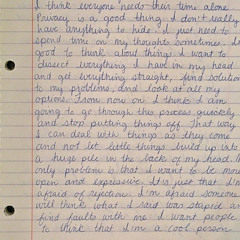 I think everyone needs their time alone
Privacy is a good thing. I don't really
have anything to hide. I just need to
spend time on my thoughts sometimes. It's
good to think about things. I want to
dissect everything I have in my head
and get everything straight, find solutions
to my problems, and look at all my
options. From now on I think I am
going to go through this process quickly
and stop putting things off. That way
I can deal with things as they come
and not let little things build up into
a huge pile in the back of my head. My
only problem is that I want to be more
open and expressive. It is just that I'm
afraid of rejection. I'm afraid someone
will think what I said was stupid or
find faults with me. I want people
to think that I'm a cool person